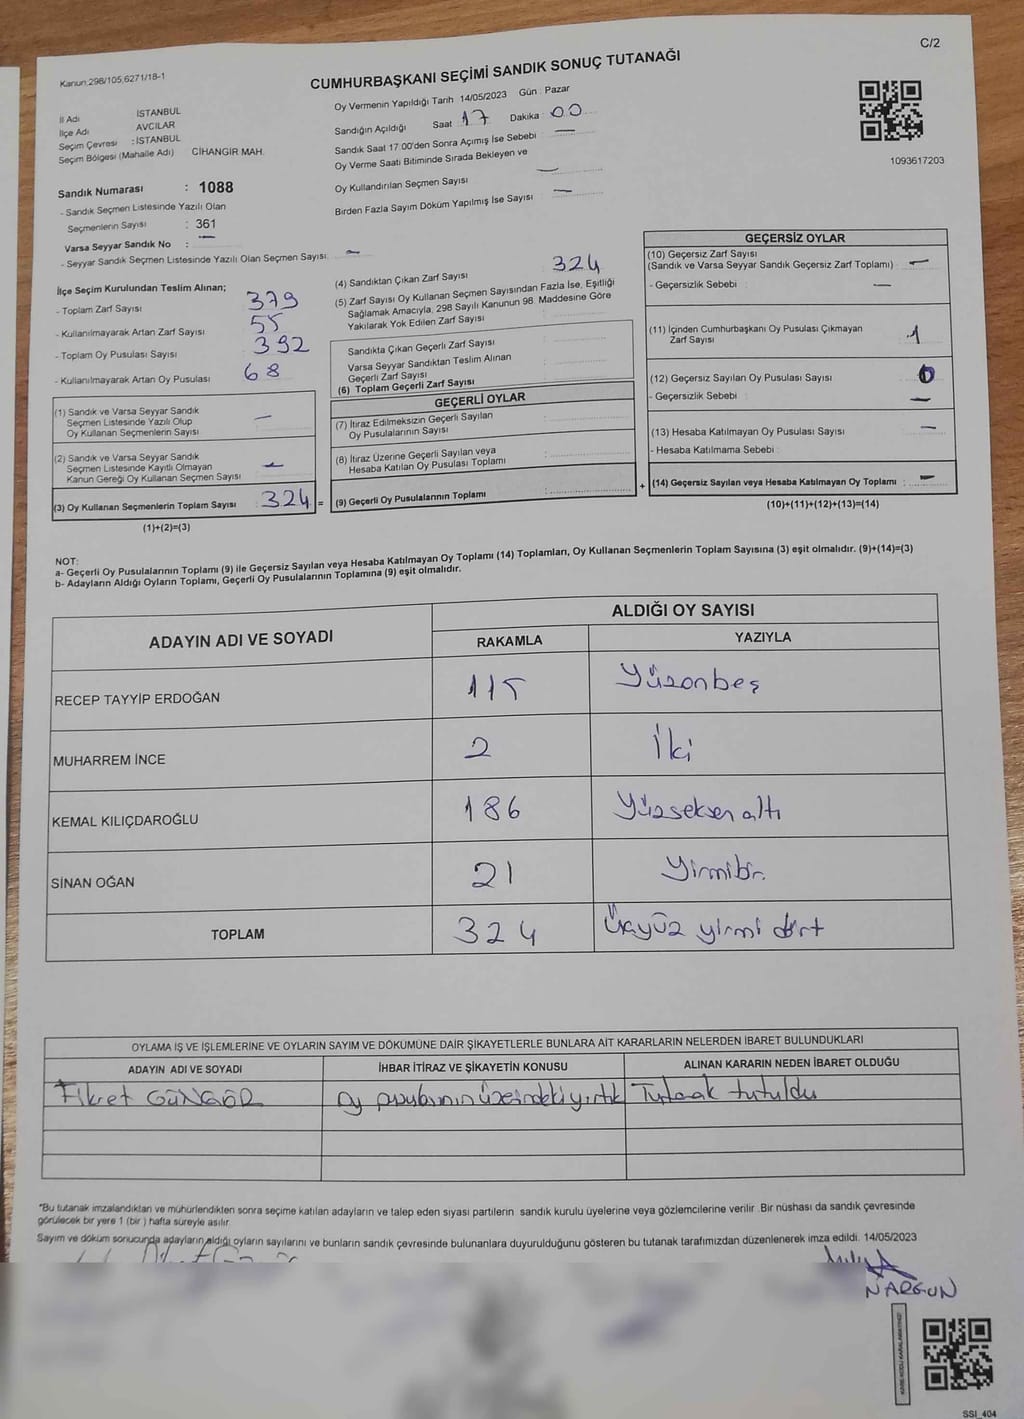 C/2
Kanun:298/105,6271/18-1
CUMHURBAŞKANI SEÇİMİ SANDIK SONUÇ TUTANAĞI
İl Adı İSTANBUL
İlçe Adı AVCILAR
Seçim Çevresi : İSTANBUL
Seçim Bölgesi (Mahalle Adı) CİHANGİR MAH.
Oy Vermenin Yapıldığı Tarih 14/05/2023 Gün : Pazar
Sandığın Açıldığı Saat 17 Dakika : 00
Sandık Saat 17:00'den Sonra Açımış İse Sebebi : —
Oy Verme Saati Bitiminde Sırada Bekleyen ve
Oy Kullandırılan Seçmen Sayısı —
Birden Fazla Sayım Döküm Yapılmış İse Sayısı —
1093617203
Sandık Numarası : 1088
- Sandık Seçmen Listesinde Yazılı Olan
Seçmenlerin Sayısı : 361
Varsa Seyyar Sandık No : —
- Seyyar Sandık Seçmen Listesinde Yazılı Olan Seçmen Sayısı: —
İlçe Seçim Kurulundan Teslim Alınan;
- Toplam Zarf Sayısı 379
- Kullanılmayarak Artan Zarf Sayısı 55
- Toplam Oy Pusulası Sayısı 392
- Kullanılmayarak Artan Oy Pusulası 68
(1) Sandık ve Varsa Seyyar Sandık
Seçmen Listesinde Yazılı Olup
Oy Kullanan Seçmenlerin Sayısı —
(2) Sandık ve Varsa Seyyar Sandık
Seçmen Listesinde Kayıtlı Olmayan
Kanun Gereği Oy Kullanan Seçmen Sayısı —
(3) Oy Kullanan Seçmenlerin Toplam Sayısı : 324 =
(1)+(2)=(3)
(4) Sandıktan Çıkan Zarf Sayısı 324
(5) Zarf Sayısı Oy Kullanan Seçmen Sayısından Fazla İse, Eşitliği
Sağlamak Amacıyla, 298 Sayılı Kanunun 98. Maddesine Göre
Yakılarak Yok Edilen Zarf Sayısı
Sandıkta Çıkan Geçerli Zarf Sayısı
Varsa Seyyar Sandıktan Teslim Alınan
Geçerli Zarf Sayısı
(6) Toplam Geçerli Zarf Sayısı
GEÇERLİ OYLAR
(7) İtiraz Edilmeksizin Geçerli Sayılan
Oy Pusulalarının Sayısı
(8) İtiraz Üzerine Geçerli Sayılan veya
Hesaba Katılan Oy Pusulası Toplamı
(9) Geçerli Oy Pusulalarının Toplamı +
GEÇERSİZ OYLAR
(10) Geçersiz Zarf Sayısı
(Sandık ve Varsa Seyyar Sandık Geçersiz Zarf Toplamı) —
- Geçersizlik Sebebi : —
(11) İçinden Cumhurbaşkanı Oy Pusulası Çıkmayan
Zarf Sayısı 1
(12) Geçersiz Sayılan Oy Pusulası Sayısı 0
- Geçersizlik Sebebi —
(13) Hesaba Katılmayan Oy Pusulası Sayısı —
- Hesaba Katılmama Sebebi :
(14) Geçersiz Sayılan veya Hesaba Katılmayan Oy Toplamı : —
(10)+(11)+(12)+(13)=(14)
NOT:
a- Geçerli Oy Pusulalarının Toplamı (9) ile Geçersiz Sayılan veya Hesaba Katılmayan Oy Toplamı (14) Toplamları, Oy Kullanan Seçmenlerin Toplam Sayısına (3) eşit olmalıdır. (9)+(14)=(3)
b- Adayların Aldığı Oyların Toplamı, Geçerli Oy Pusulalarının Toplamına (9) eşit olmalıdır.
ADAYIN ADI VE SOYADI ALDIĞI OY SAYISI
RAKAMLA YAZIYLA
RECEP TAYYİP ERDOĞAN 115 Yüzonbeş
MUHARREM İNCE 2 İki
KEMAL KILIÇDAROĞLU 186 Yüzseksen altı
SİNAN OĞAN 21 Yirmibir
TOPLAM 324 Üçyüz yirmi dört
OYLAMA İŞ VE İŞLEMLERİNE VE OYLARIN SAYIM VE DÖKÜMÜNE DAİR ŞİKAYETLERLE BUNLARA AİT KARARLARIN NELERDEN İBARET BULUNDUKLARI
ADAYIN ADI VE SOYADI İHBAR İTİRAZ VE ŞİKAYETİN KONUSU ALINAN KARARIN NEDEN İBARET OLDUĞU
Fikret GÜNGÖR oy pusulasının üzerindeki yırtık Tutanak tutuldu
"Bu tutanak imzalandıktan ve mühürlendikten sonra seçime katılan adayların ve talep eden siyasi partilerin sandık kurulu üyelerine veya gözlemcilerine verilir. Bir nüshası da sandık çevresinde
görülecek bir yere 1 (bir ) hafta süreyle asılır.
Sayım ve döküm sonucunda adayların aldığı oyların sayılarını ve bunların sandık çevresinde bulunanlara duyurulduğunu gösteren bu tutanak tarafımızdan düzenlenerek imza edildi. 14/05/2023
NARGUN
SSI_404